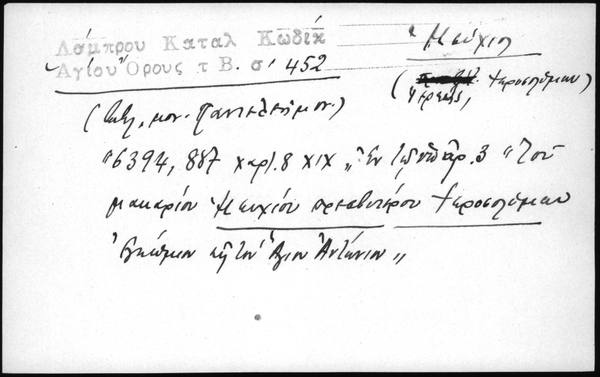 Λάμπρου Καταλ Κωδίκ
Ἁγίου Ὄρους τ Β. σ' 452
Ἡσύχιος
Ἱεροσολύμων)
(Βιβλ. μον. Παντελεήμον.)
"6394, 887 χαρτ. 8 XIX "Ἐν ὑπ' ἀρ. 3 "Τοῦ
μακαρίου Ἡσυχίου πρεσβυτέρου Ἱεροσολύμων
Ἐγκώμιον εἰς τὸν Ἅγιον Ἀντώνιον"